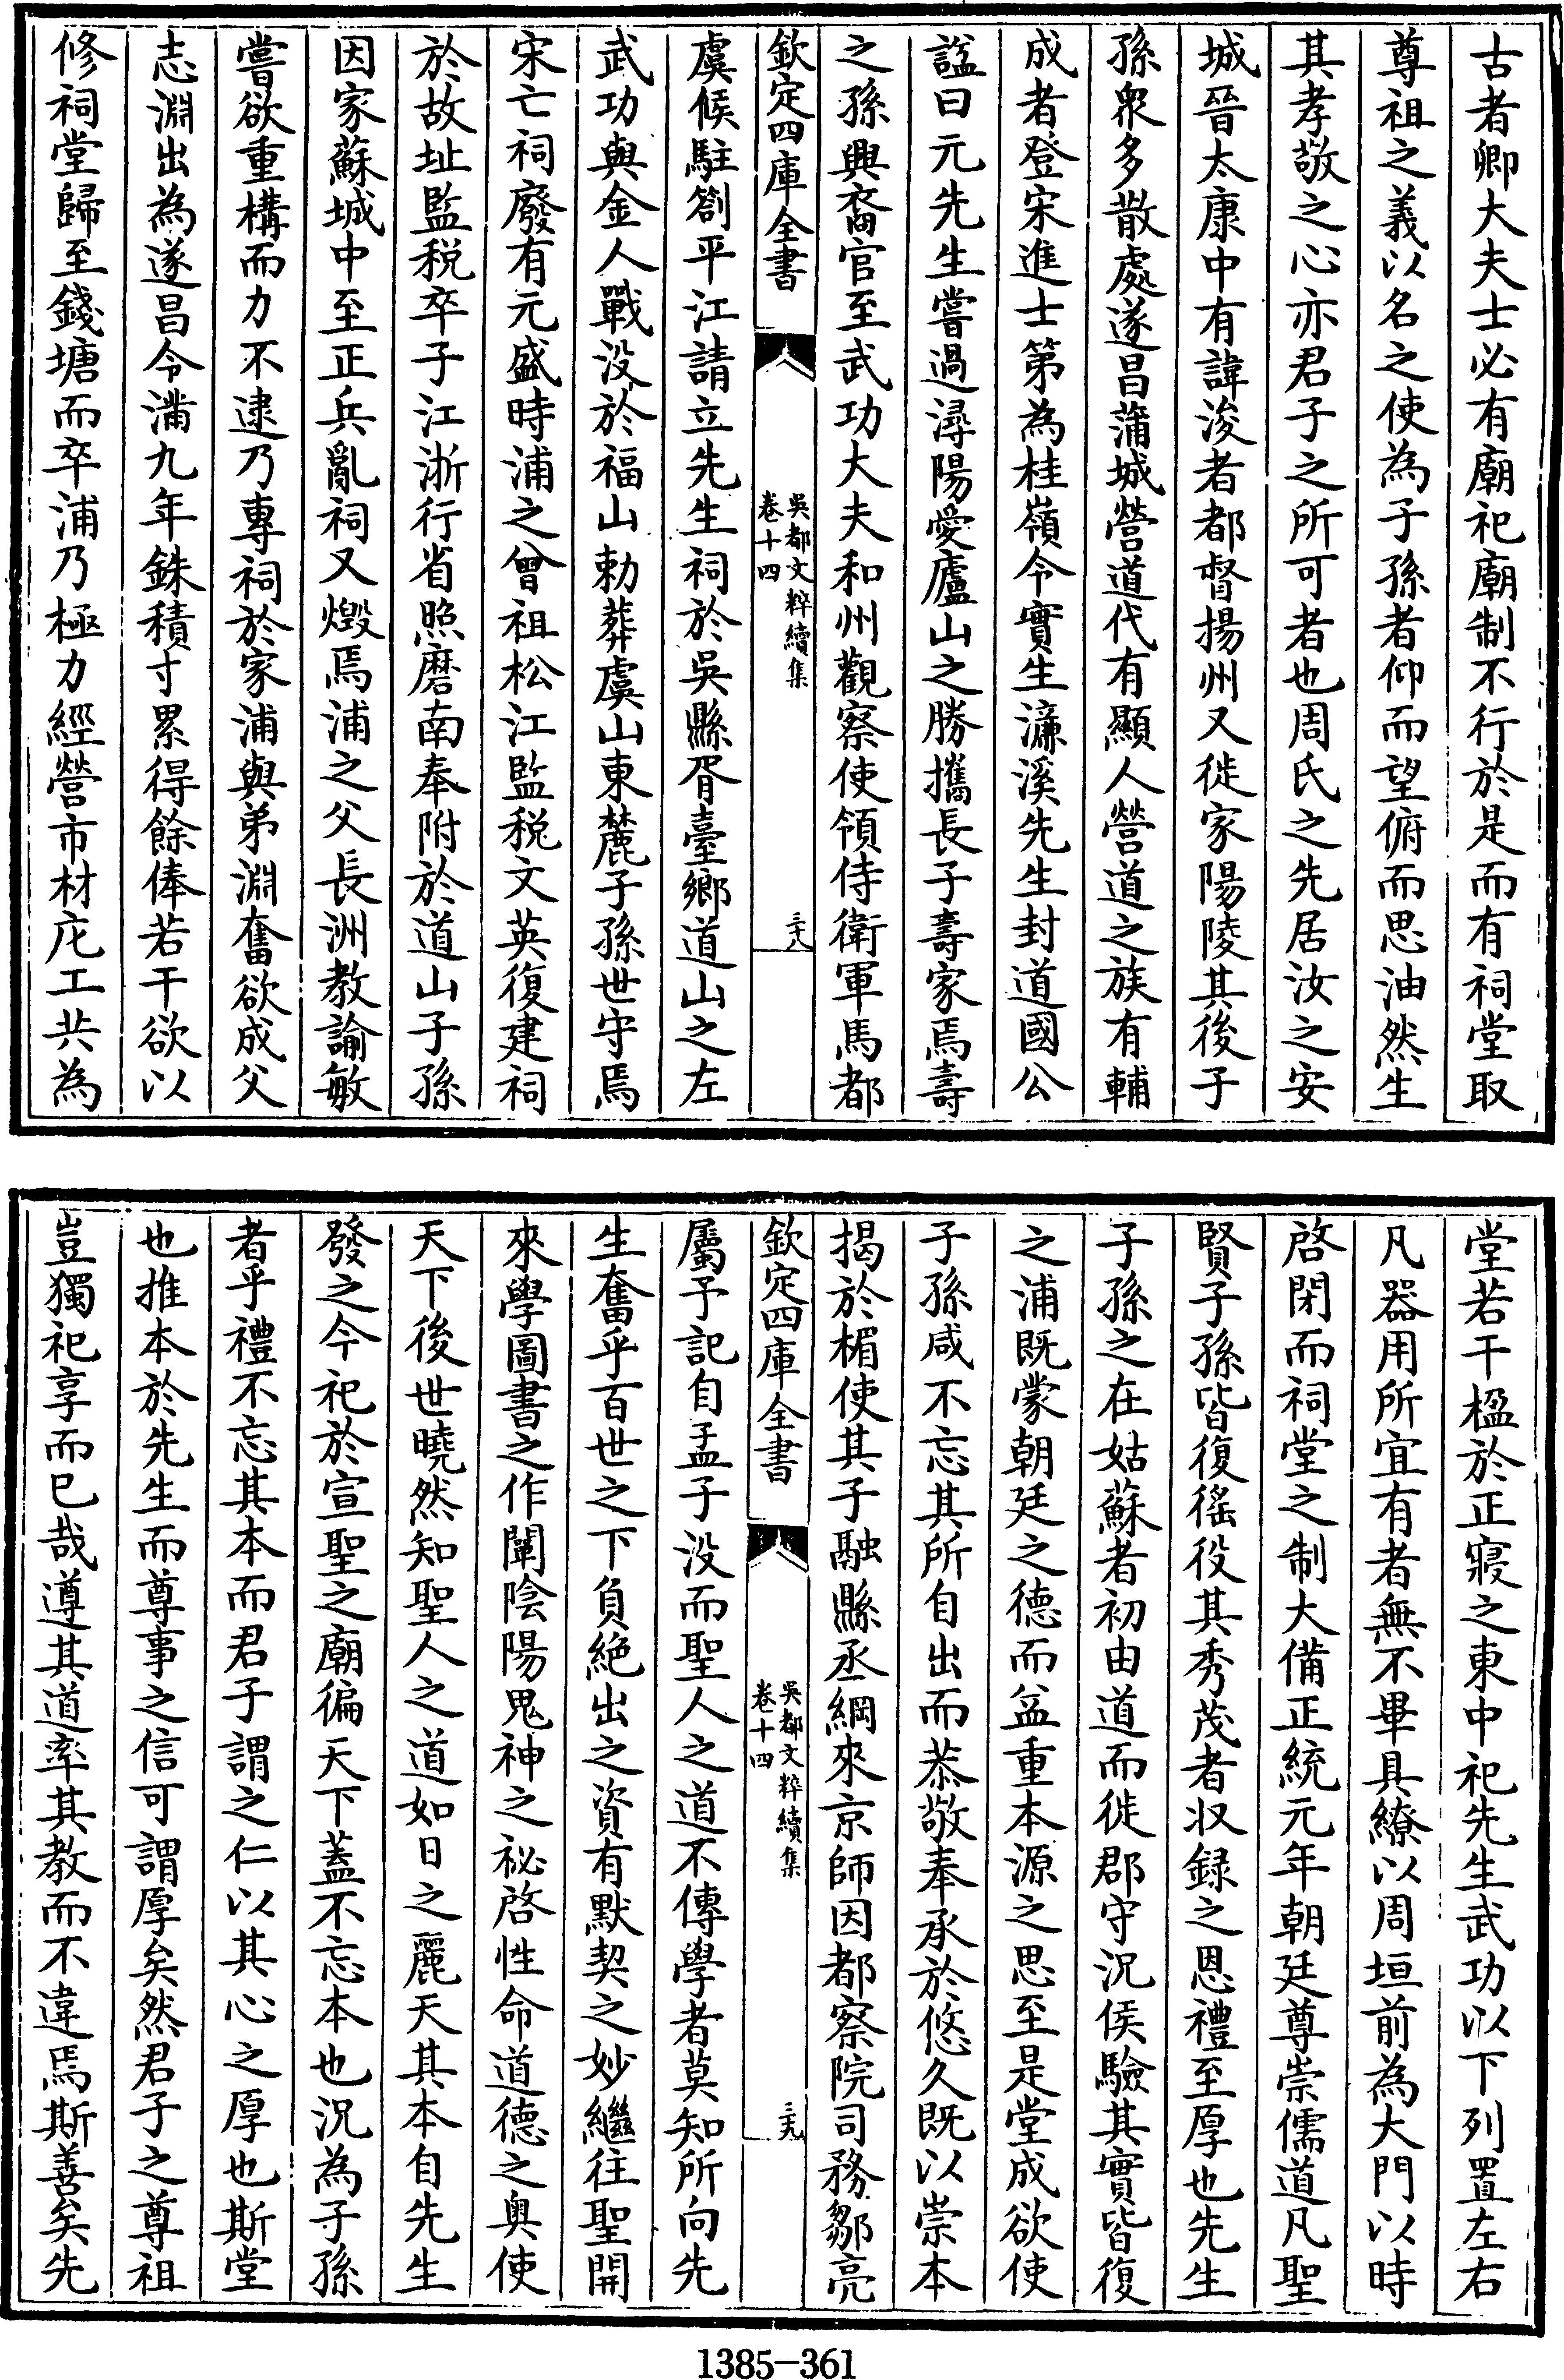 古者卿大夫士必有廟祀廟制不行於是而有祠堂取
尊祖之義以名之使為子孫者仰而望俯而思油然生
其孝敬之心亦君子之所可者也周氏之先居汝之安
城晉太康中有諱浚者都督揚州又徙家陽陵其後子
孫衆多散處遂昌蒲城營道代有顯人營道之族有輔
成者登宋進士第為桂嶺令實生濂溪先生封道國公
諡曰元先生嘗過潯陽愛廬山之勝攜長子壽家焉壽
之孫興裔官至武功大夫和州觀察使領侍衛軍馬都
欽定四庫全書
吳都文粹續集
卷十四
三十八
虞候駐劄平江請立先生祠於吳縣胥臺鄉道山之左
武功與金人戰没於福山勅葬虞山東麓子孫世守焉
宋亡祠廢有元盛時浦之曾祖松江監税文英復建祠
於故址監税卒子江浙行省照磨南奉附於道山子孫
因家蘇城中至正兵亂祠又燬焉浦之父長洲教諭敏
嘗欲重構而力不逮乃專祠於家浦與弟淵奮欲成父
志淵出為遂昌令滿九年銖積寸累得餘俸若干欲以
修祠堂歸至錢塘而卒浦乃極力經營市材庀工共為
堂若干楹於正寢之東中祀先生武功以下列置左右
凡器用所宜有者無不畢具繚以周垣前為大門以時
啓閉而祠堂之制大備正統元年朝廷尊崇儒道凡聖
賢子孫皆復徭役其秀茂者収録之恩禮至厚也先生
子孫之在姑蘇者初由道而徙郡守況侯驗其實皆復
之浦既蒙朝廷之德而益重本源之思至是堂成欲使
子孫咸不忘其所自出而恭敬奉承於悠久既以崇本
揭於楣使其子融縣丞綱來京師因都察院司務鄒亮
欽定四庫全書
吳都文粹續集
卷十四
三十九
屬予記自孟子没而聖人之道不傳學者莫知所向先
生奮乎百世之下負絶出之資有默契之妙繼往聖開
來學圖書之作闡陰陽鬼神之祕啓性命道德之奥使
天下後世曉然知聖人之道如日之麗天其本自先生
發之今祀於宣聖之廟徧天下蓋不忘本也況為子孫
者乎禮不忘其本而君子謂之仁以其心之厚也斯堂
也推本於先生而尊事之信可謂厚矣然君子之尊祖
豈獨祀享而已哉遵其道率其教而不違焉斯善矣先
1385-361